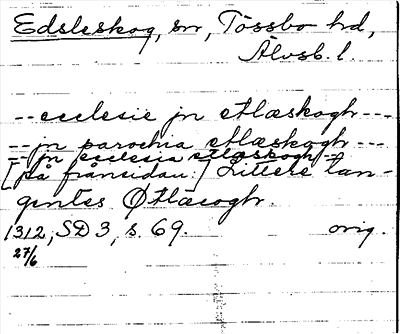 Edsleskog, sn, Tössbo hd,
Älvsb. l.
-- ecclesie jn etlæskogh ---
-- jn parochia etlæskogh ---
-- jn ecclesia etlæskogh --
[på frånsidan:] Littere tan-
gentes Øtlæsogh.
1312, SD 3, s. 69. orig.
27/6